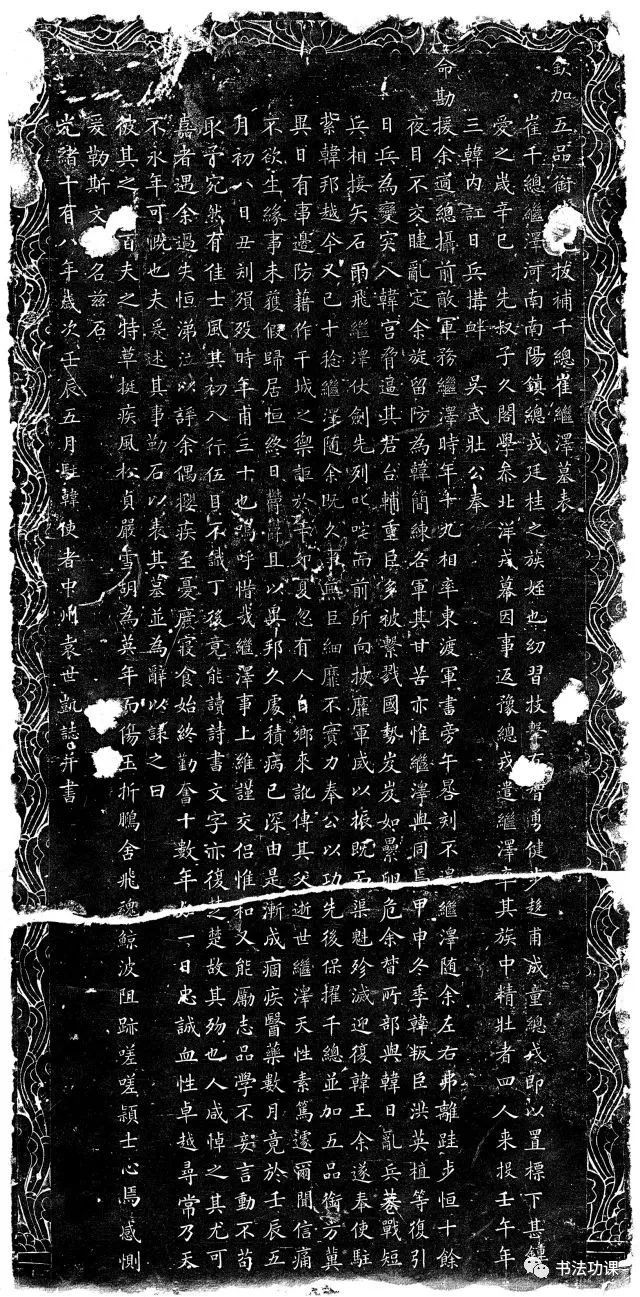 欽加五品銜拔補千總崔繼澤墓表
崔千總繼澤河南南陽鎮總戎廷桂之族姪也幼習技擊勇健步趍甫成童總戎即以置標下甚鍾
愛之歲辛巳先叔子久閣學叅北洋戎幕因事返豫總戎遣繼澤率其族中精壯者四人來投壬午年
三韓內訌日兵搆衅吳武壯公奉
命勘援余適總攝前敵軍務繼澤時年十九相率東渡軍書旁午晷刻不遑繼澤随余左右弗離跬步恒十餘
夜目不交睫亂定余旋留防為韓簡練各軍其甘苦亦惟繼澤與同焉甲申冬季韓叛臣洪英植等復引
日兵為變突入韓宮脅逼其君台輔重臣多被繫戮國勢岌岌如纍卵危余督所部與韓日亂兵巷戰短
兵相接矢石雨飛繼澤仗劍先列叱咤而前所向披靡軍威以振既而渠魁殄滅迎復韓王余遂奉使駐
紮韓邦越今又已十稔繼澤随余既久事無巨細靡不實力奉公以功先後保擢千總並加五品銜方冀
異日有事邊防藉作干城之禦詎於辛卯夏忽有人自鄉來訛傳其父逝世繼澤天性素篤遽爾聞信痛
不欲生緣事未獲假歸居恒終日鬱鬱且以異邦久處積病已深由是漸成痼疾醫藥數月竟於壬辰五
月初八日丑刻殞歿時年甫三十也嗚呼惜哉繼澤事上維謹交侶惟和又能勵志品學不妄言動不苟
取予宛然有佳士風其初入行伍目不識丁後竟能讀詩書文字亦復楚楚故其殁也人咸悼之其尤可
嘉者遇余過失恒涕泣以諍余偶攖疾至憂廢寢食始終勤奮十數年如一日忠誠血性卓越尋常乃天
不永年可慨也夫爰述其事勒石以表其墓並為辭以誄之曰
彼其之百夫之特草挺疾風松貞嚴雪胡為英年而傷玉折鵬舍飛魂鯨波阻跡嗟嗟潁士心焉感惻
爰勒斯文名茲石
光緒十有八年歲次壬辰五月駐韓使者中州袁世凱誌并書
书法功课